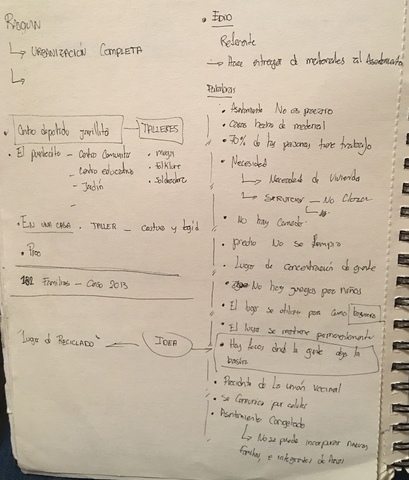 ↳ URBANIZACIÓN COMPLETA
↳
• Centro deportido jamillita — TALLERES
• El puentecito — Centro Comunitar
— centro educativo
— Jardín
—
• magi
• folklore
• Soldadora
• EN UNA CASA. TALLER — costura y
• Piso
182 Familias — Censo 2013
"Lugar de RECICLADO" ← IDEA
• EDUO
Referente
→ Hace entrega de materiales al Asentamiento
Palabras
• Asentamiento No es precario
• Casas hechas de material
• 70% de las personas tiene trabajo
• Necesidad
↳ Necesidad de Vivienda
↳ SERVICIOS — No Cloacas
• No hay Comedor
• predio No se
• Lugar de concentración de gente
• No hay juegos para niños
• El lugar se utiliza para como basurero
• El lugar se mantiene permanentemente
• Hay focos donde la gente deja la basura
• Presidente de la unión vecinal
• Se comunica por celular
• Asentamiento Congelado
↳ No se puede incorporar nuevas
familias, e integrantes de